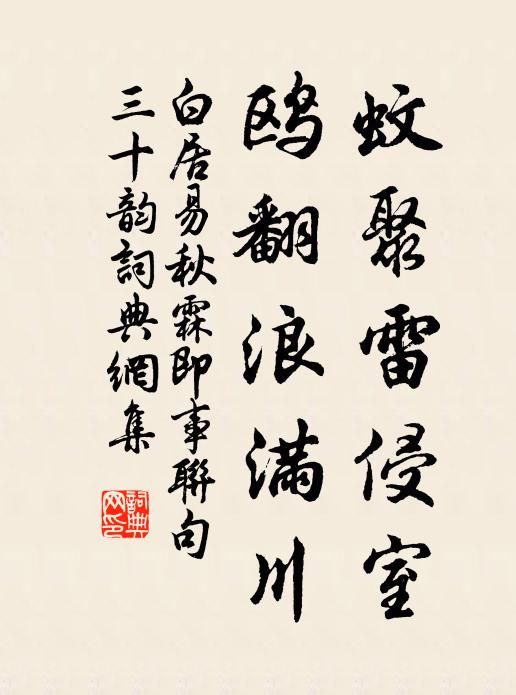 蚊聚雷侵室
鸥翻浪满川
白居易秋霖即事聯句
三十韵詞典網集
詞典
网印